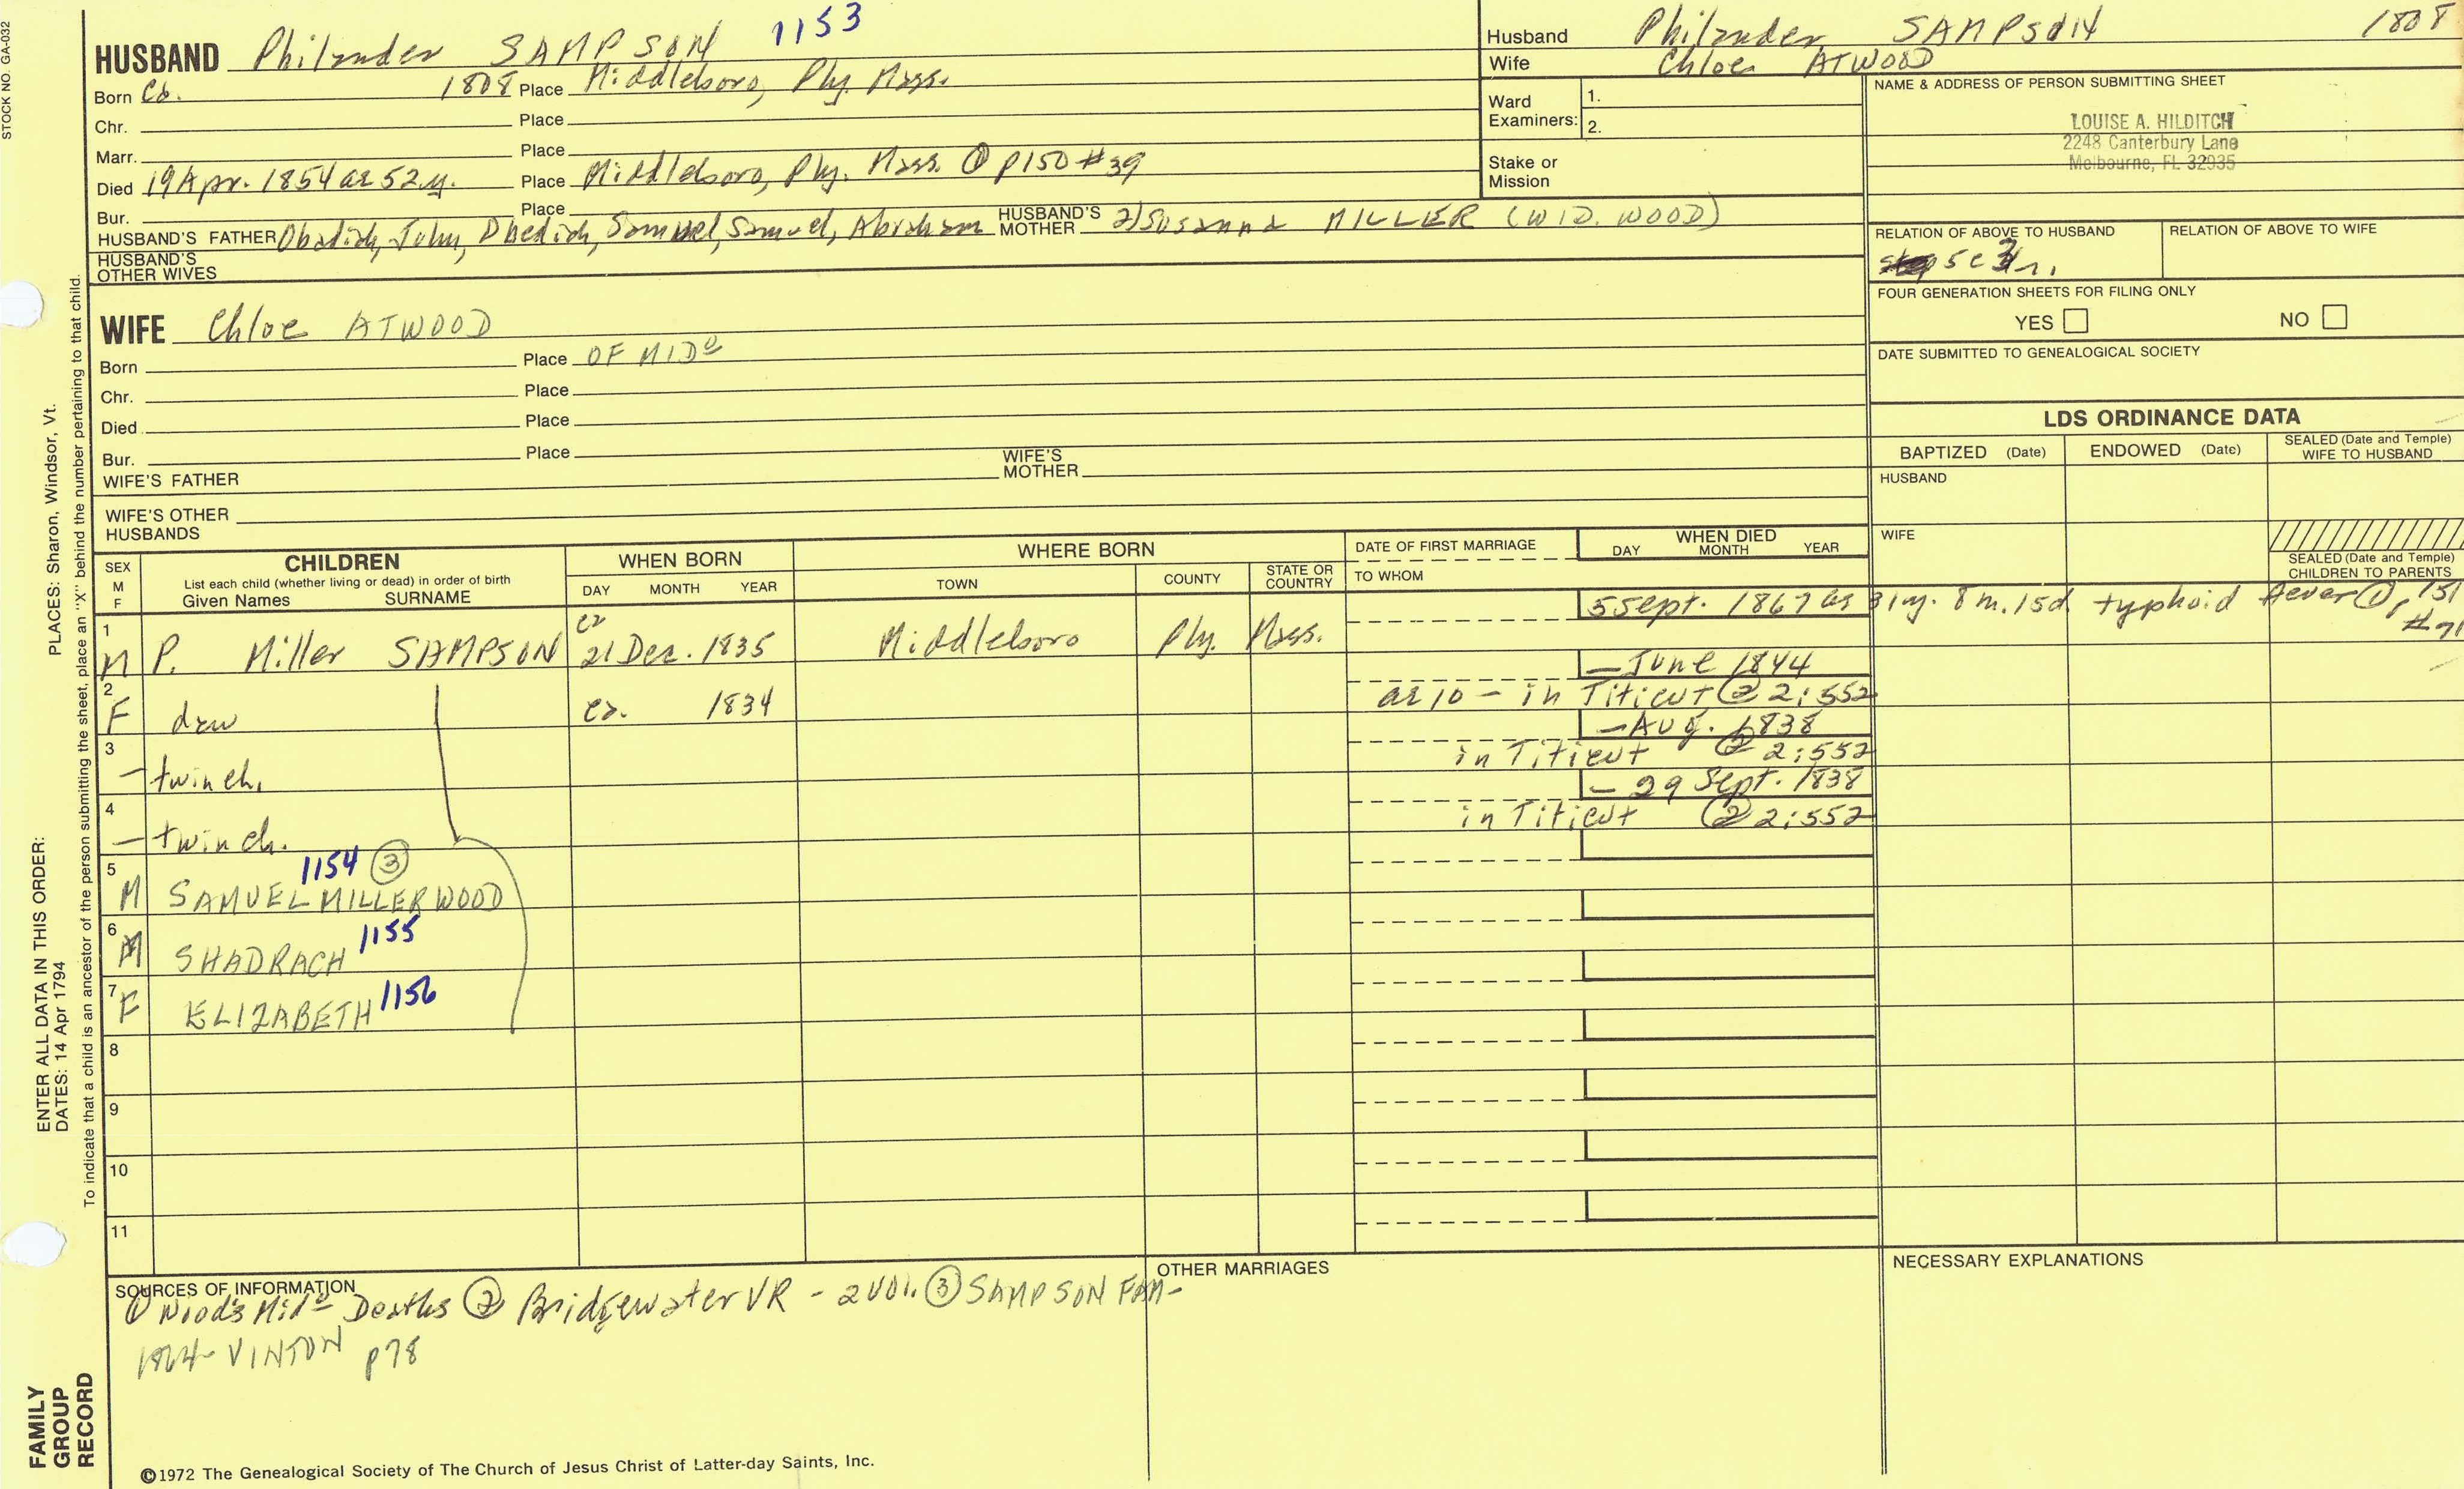 STOCK NO. GA-032
1153
HUSBAND Philander SAMPSON
Born Ca. 1808 Place Middleboro, Ply. Mass.
Chr. Place
Marr. Place
Died 19 Apr. 1854 ae 52 y. Place Middleboro, Ply. Mass. ① p150 #39
Bur. Place
HUSBAND'S FATHER Obadiah, John, Obediah, Samuel, Samuel, Abraham HUSBAND'S MOTHER 2) Susanna MILLER (WID. WOOD)
HUSBAND'S OTHER WIVES
WIFE Chloe ATWOOD
Born Place OF MIDo
Chr. Place
Died Place
Bur. Place
WIFE'S FATHER WIFE'S MOTHER
WIFE'S OTHER HUSBANDS
Husband Philander SAMPSON 1808
Wife Chloe ATWOOD
Ward Examiners: 1.
2.
Stake or Mission
NAME & ADDRESS OF PERSON SUBMITTING SHEET
LOUISE A. HILDITCH
2248 Canterbury Lane
Melbourne, FL 32935
RELATION OF ABOVE TO HUSBAND RELATION OF ABOVE TO WIFE
5c 3r.
FOUR GENERATION SHEETS FOR FILING ONLY
YES NO
DATE SUBMITTED TO GENEALOGICAL SOCIETY
LDS ORDINANCE DATA
BAPTIZED (Date) ENDOWED (Date) SEALED (Date and Temple) WIFE TO HUSBAND
HUSBAND
WIFE
SEALED (Date and Temple) CHILDREN TO PARENTS
SEX M F
CHILDREN
List each child (whether living or dead) in order of birth
Given Names SURNAME
WHEN BORN
DAY MONTH YEAR
WHERE BORN
TOWN COUNTY STATE OR COUNTRY
DATE OF FIRST MARRIAGE
TO WHOM
WHEN DIED
DAY MONTH YEAR
5 Sept. 1867 ae 31y. 8m. 15d typhoid fever ① p 151 #71
1 M P. Miller SAMPSON ca 21 Dec. 1835 Middleboro Ply. Mass.
— June 1844
2 F dau ca. 1834 ae 10 – in Titicut ② 2:552
— Aug. 1838
3 – twin ch. in Titicut ② 2:552
– 29 Sept. 1838
4 – twin ch. in Titicut ② 2:552
5 M SAMUEL MILLER WOOD 1154 ③
6 M SHADRACH 1155
7 F ELIZABETH 1156
8
9
10
11
SOURCES OF INFORMATION
① Wood's Mido Deaths ② Bridgewater VR – 2 vol. ③ SAMPSON FAM –
1864 VINTON p78
OTHER MARRIAGES
NECESSARY EXPLANATIONS
©1972 The Genealogical Society of The Church of Jesus Christ of Latter-day Saints, Inc.
ENTER ALL DATA IN THIS ORDER:
DATES: 14 Apr 1794
PLACES: Sharon, Windsor, Vt.
To indicate that a child is an ancestor of the person submitting the sheet, place an "X" behind the number pertaining to that child.
FAMILY
GROUP
RECORD